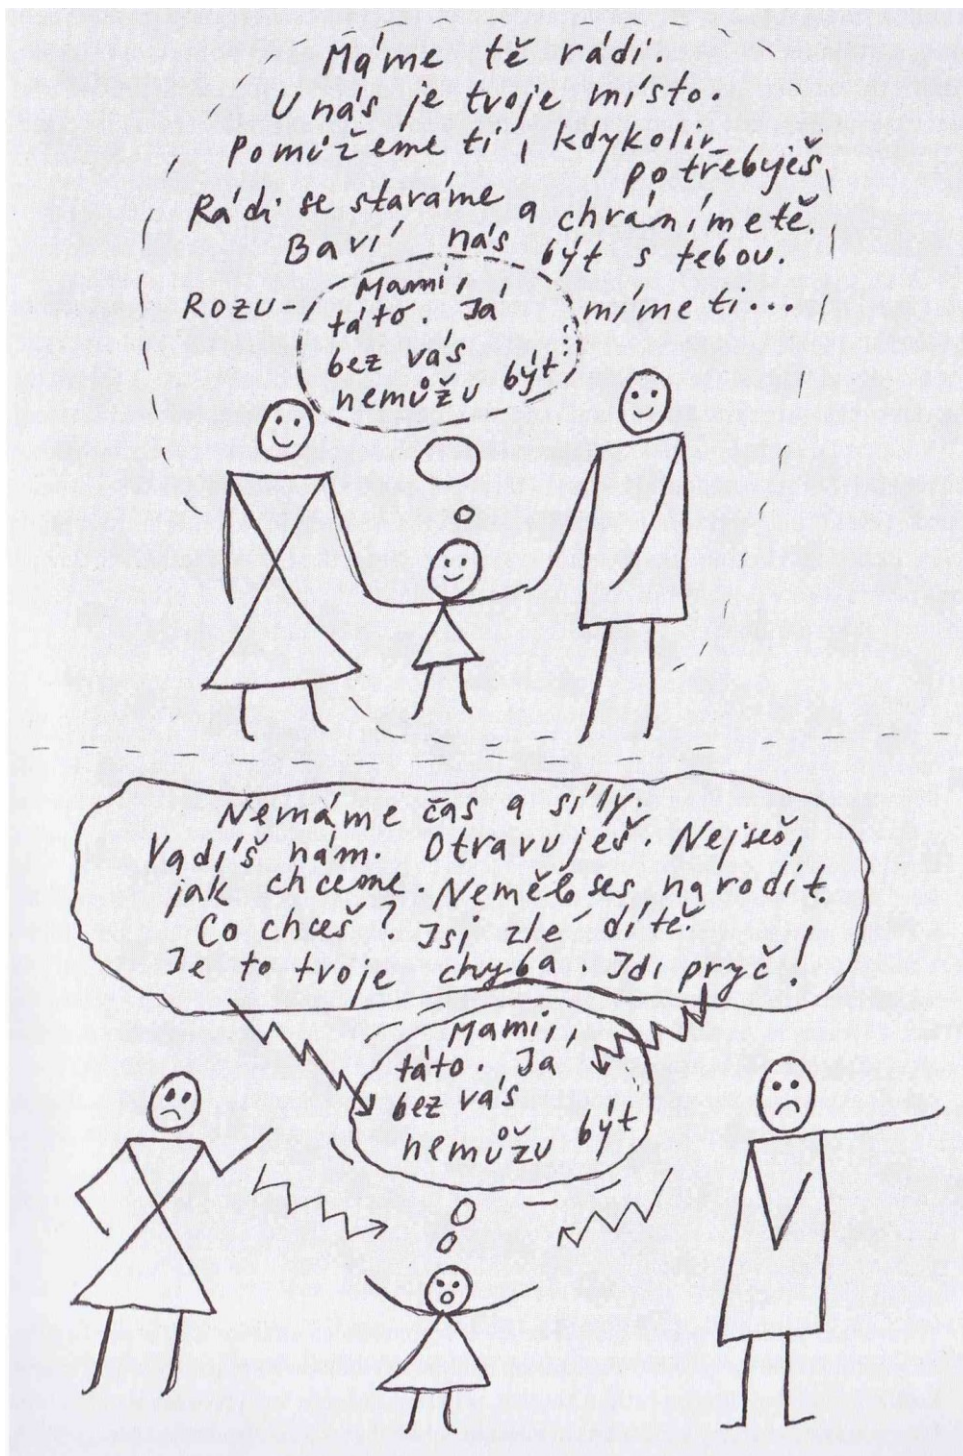 Máme tě rádi.
U nás je tvoje místo.
Pomůžeme ti, kdykoliv
potřebuješ,
Rádi se staráme a chráníme tě.
Baví nás být s tebou.
Rozu- míme ti...
Mami,
táto. Já
bez vás
nemůžu být
Nemáme čas a síly.
Vadíš nám. Otravuješ. Nejseš,
jak chceme. Neměls ses narodit.
Co chceš? Jsi zlé dítě.
Je to tvoje chyba. Jdi pryč!
Mami,
táto. Ja
bez vás
nemůžu být